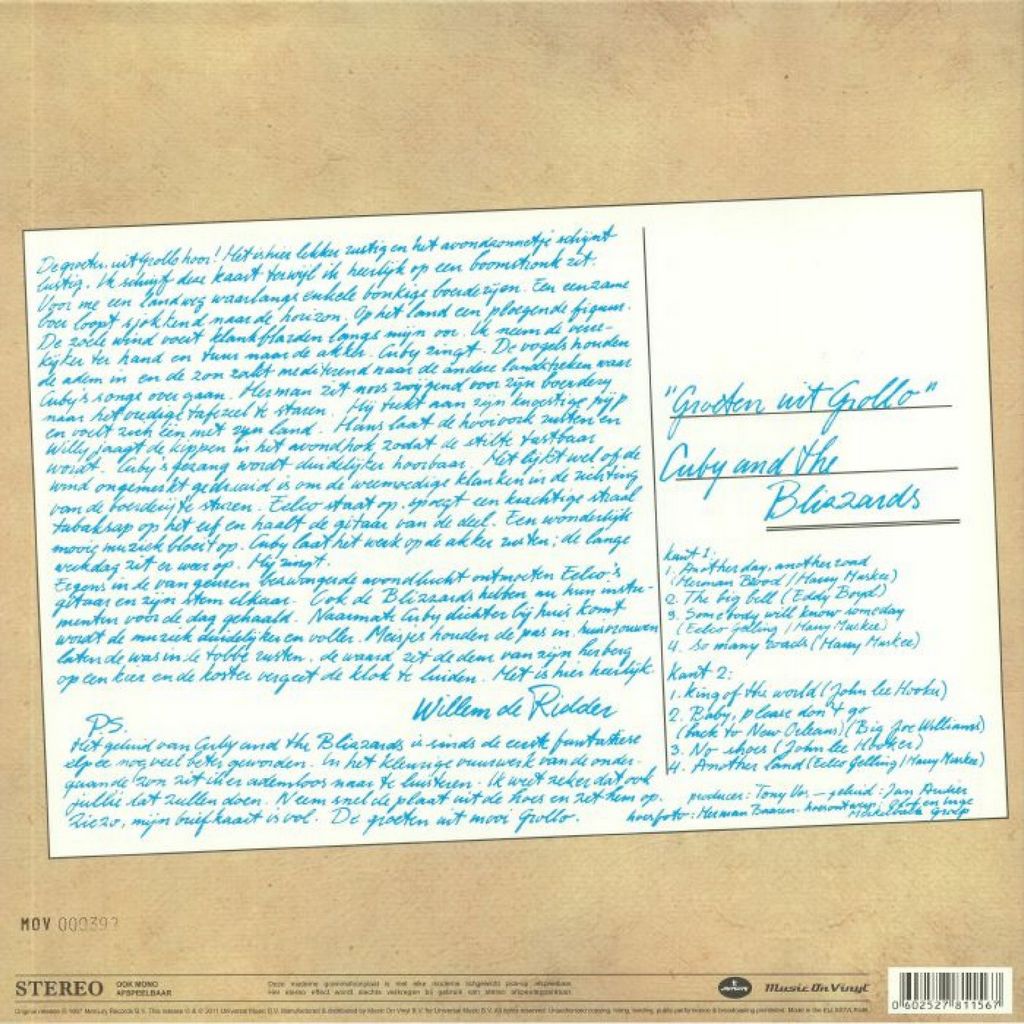 De groeten uit Grollo hoor! Het is hier lekker rustig en het avondzonnetje schijnt
lustig. Ik schrijf deze kaart terwijl ik heerlijk op een boomstronk zit.
Voor me een landweg waarlangs enkele bonkige boerderijen. Een eenzame
boer loopt sjokkend naar de horizon. Op het land een ploegende figuur.
De zoele wind voert klankflarden langs mijn oor. Ik neem de verre-
kijker ter hand en tuur naar de akker. Cuby zingt. De vogels houden
de adem in en de zon zakt mediterend naar de andere landstreken waar
Cuby's songs overgaan. Herman zit nors zwijgend voor zijn boerderij
naar het vredige tafereel te staren. Hij trekt aan zijn knoestige pijp
en voelt zich één met zijn land. Hans laat de hooivork rusten en
Willy jaagt de kippen in het avondhok zodat de stilte tastbaar
wordt. Cuby's gezang wordt duidelijker hoorbaar. Het lijkt wel of de
wind ongemerkt gedraaid is om de weemoedige klanken in de richting
van de boerderij te sturen. Eelco staat op, spoegt een krachtige straal
tabaksap op het erf en haalt de gitaar van de deel. Een wonderlijk
mooie muziek bloeit op. Cuby laat het werk op de akker rusten; de lange
werkdag zit er weer op. Hij zingt.
Ergens in de van geuren bezwangerde avondlucht ontmoeten Eelco's
gitaar en zijn stem elkaar. Ook de Blizzards hebben nu hun instru-
menten voor de dag gehaald. Naarmate Cuby dichter bij huis komt
wordt de muziek duidelijker en voller. Meisjes houden de pas in, huisvrouwen
laten de was in de tobbe rusten, de waard zet de deur van zijn herberg
op een kier en de koster vergeet de klok te luiden. Het is hier heerlijk.
Willem de Ridder
P.S.
Het geluid van Cuby and the Blizzards is sinds de eerste fantastiese
elpee nog veel beter geworden. In het kleurige vuurwerk van de onder-
gaande zon zit ik er ademloos naar te luisteren. Ik weet zeker dat ook
jullie dat zullen doen. Neem snel de plaat uit de hoes en zet hem op.
Ziezo, mijn briefkaart is vol. De groeten uit mooi Grollo.
"Groeten uit Grollo"
Cuby and the
Blizzards
Kant 1:
1. Another day, another road
(Herman Brood / Harry Muskee)
2. The big bell (Eddy Boyd)
3. Somebody will know someday
(Eelco Gelling / Harry Muskee)
4. So many roads (Harry Muskee)
Kant 2:
1. King of the world (John lee Hooker)
2. Baby, please don't go
(back to New Orleans) (Big Joe Williams)
3. No shoes (John lee Hooker)
4. Another land (Eelco Gelling / Harry Muskee)
producer: Tony Vos. – geluid: Jan Audier
hoesfoto: Herman Baaren. hoesontwerp: Olof en Inge
Merkelbach Groep
MOV 000392
STEREO
OOK MONO
AFSPEELBAAR
Deze moderne grammofoonplaat is met elke moderne lichtgewicht pick-up afspeelbaar.
Het stereo effect wordt slechts verkregen bij gebruik van stereo afspeelapparatuur.
Music On Vinyl
Original release ℗ 1967 Mercury Records B.V. This release ℗ & © 2011 Universal Music B.V. Manufactured & distributed by Music On Vinyl B.V. for Universal Music B.V. All rights reserved. Unauthorized copying, hiring, lending, public performance & broadcasting prohibited. Made in the EU.
0 602527 811567